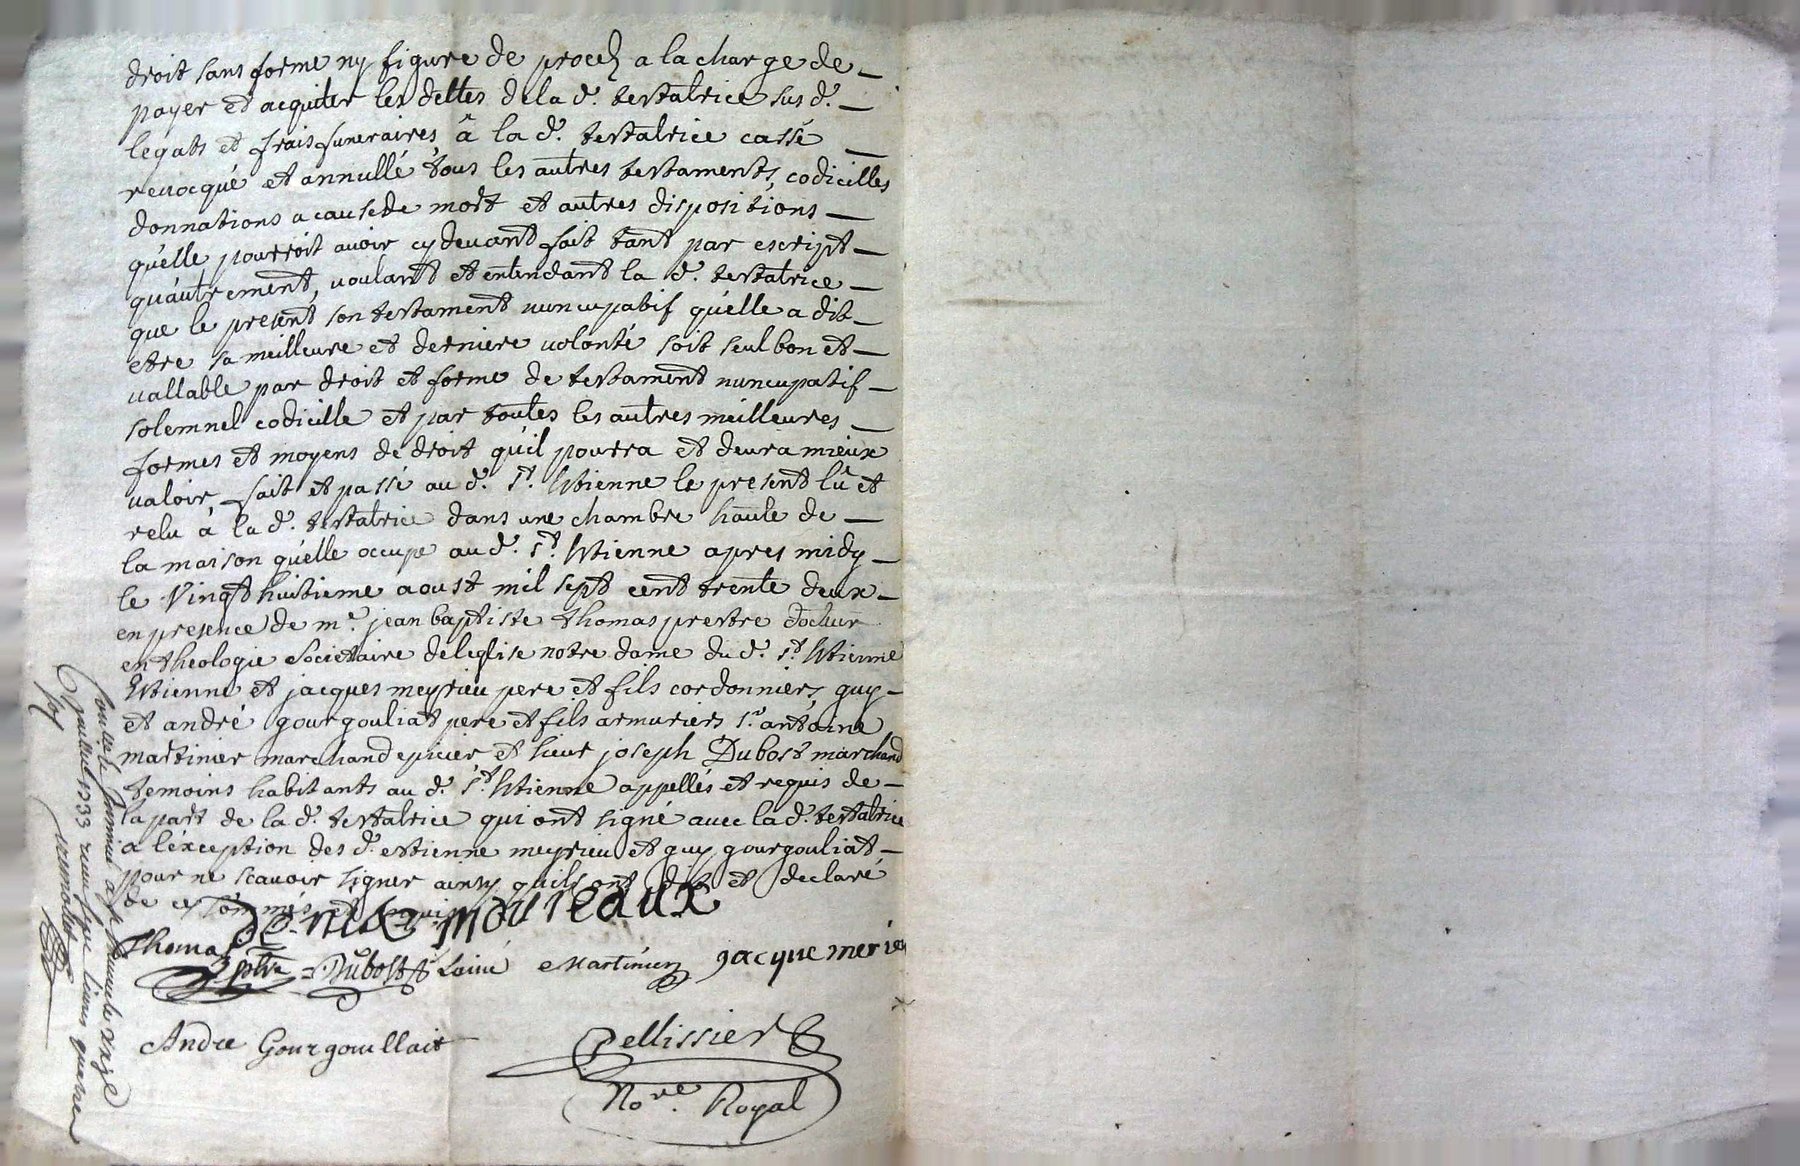 droit sans forme ny figure de proces a la charge de
payer et acquiter les dettes de la d. testatrice sus d.
legats et frais funeraires, â la d. testatrice cassé
revocqué et annullé tous les autres testaments, codicilles
donnations a cause de mort et autres dispositions
qu'elle pourroit avoir cy devant fait tant par escript
qu'autrement, voulant et entendant la d. testatrice
que le present son testament nuncupatif qu'elle a dit
etre sa meilleure et derniere volonté soit seul bon et
vallable par droit et forme de testament nuncupatif
solemnel codicille et par toutes les autres meilleures
formes et moyens de droit qu'il pourra et devra mieux
valoir fait et passé au d. St. Estienne le present lû et
relu à la d. testatrice dans une chambre haute de
la maison qu'elle occupe au d. St. Estienne apres midy
le Vingt huitieme aoust mil sept cent trente deux
en presence de me. jean baptiste thomas prestre docteur
en theologie societaire de leglise notre dame du d. St. Estienne
Estienne et jacques meyrieu pere et fils cordonniers, guy
et andré gourgouliat pere et fils armuriers sr. antoine
martinier marchand epicier et sieur joseph Dubost marchand
temoins habitants au d. St. Estienne appellés et requis de
la part de la d. testatrice qui ont signé avec la d. testatrice
a l'exception des d. estienne meyrieu et guy gourgouliat
pour ne scavoir signer ainsy quils ont dit et declaré
de ce sommés et
moureaux
Thomas
ptre Dubost Lainé Martinier jacque merieu
Andre Gourgoullait
Pellissier
Nore. Royal
juillet 1733 receu livres quatre